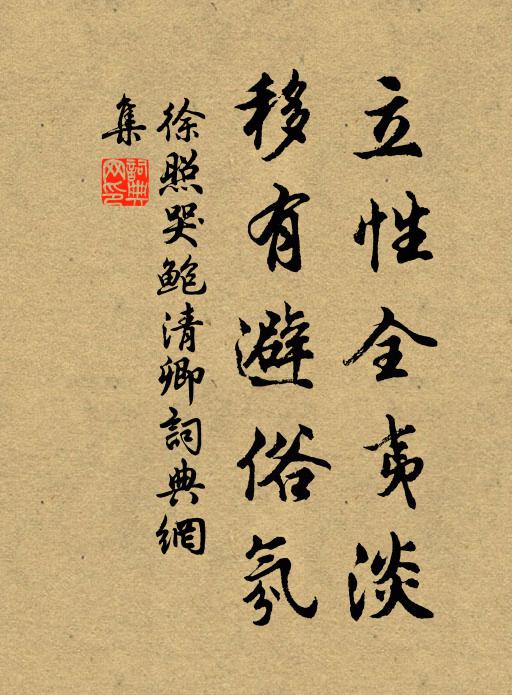 立性全夷淡
移有避俗氛
徐照哭鲍清卿詞典網
集
詞典
网印